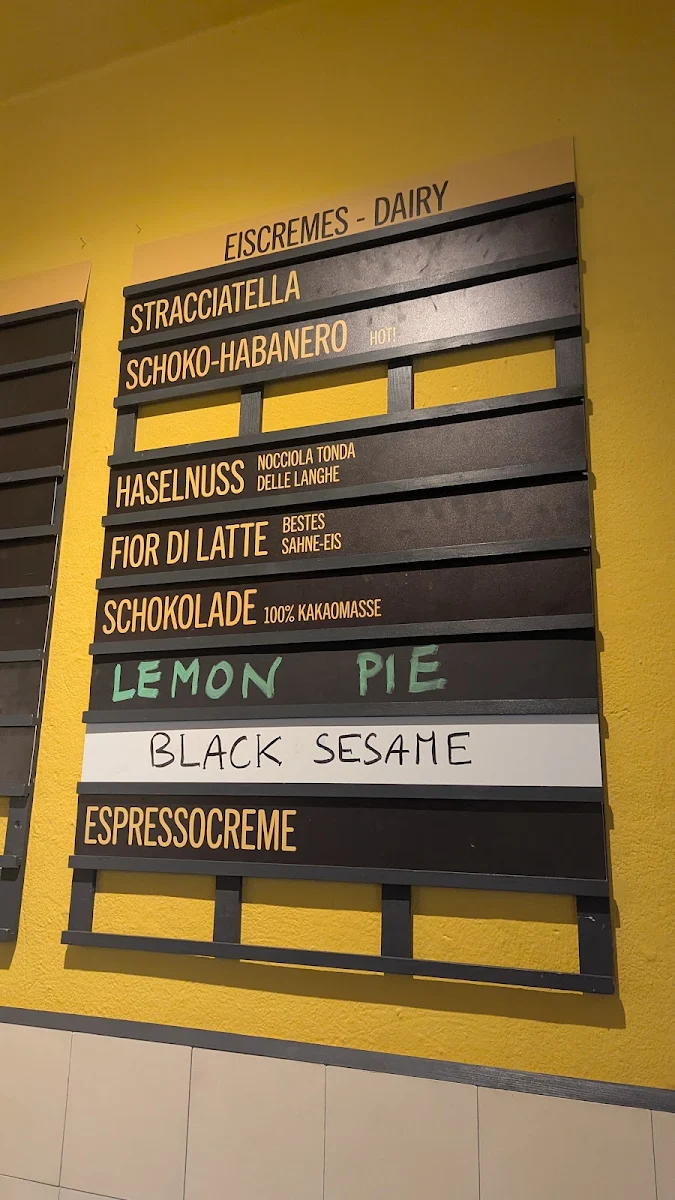 EISCREMES - DAIRY
STRACCIATELLA
SCHOKO-HABANERO HOT!
HASELNUSS NOCCIOLA TONDA
DELLE LANGHE
FIOR DI LATTE BESTES
SAHNE-EIS
SCHOKOLADE 100% KAKAOMASSE
LEMON PIE
BLACK SESAME
ESPRESSOCREME